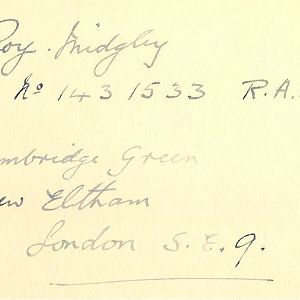 Roy. Midgley
No 1431533 R.A.
mbridge Green
ew Eltham
London S.E.9.